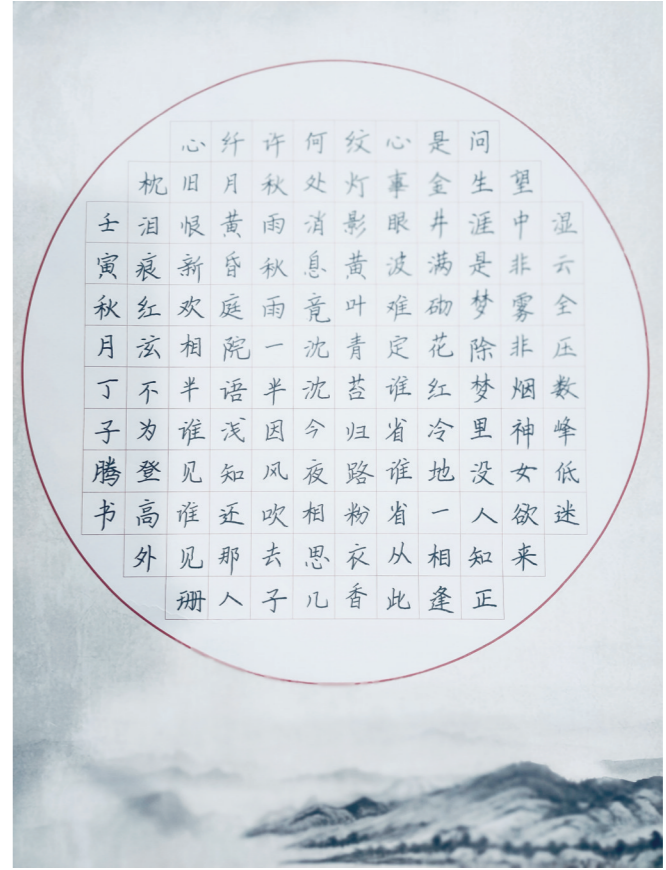 湿云全压数峰低迷
望中非雾非烟神女欲来
问生涯是梦除梦里没人知正
是金井满砌花红冷地一相逢
心事眼波难定谁省谁省从此
纹灯影黄叶青苔归路粉衣香
何处消息竟沈沈今夜相思几
许秋雨秋雨一半因风吹去子
纤月黄昏庭院语浅知还那人
心旧恨新欢相半谁见谁见珊
枕泪痕红泫不为登高外
壬寅秋月丁子腾书